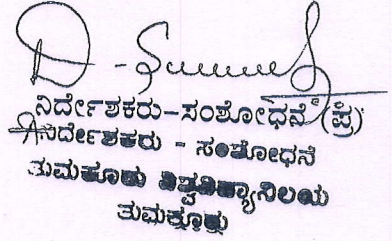 ನಿರ್ದೇಶಕರು-ಸಂಶೋಧನೆ (ಪ್ರ)
ನಿರ್ದೇಶಕರು - ಸಂಶೋಧನೆ
ತುಮಕೂರು ವಿಶ್ವವಿದ್ಯಾನಿಲಯ
ತುಮಕೂರು